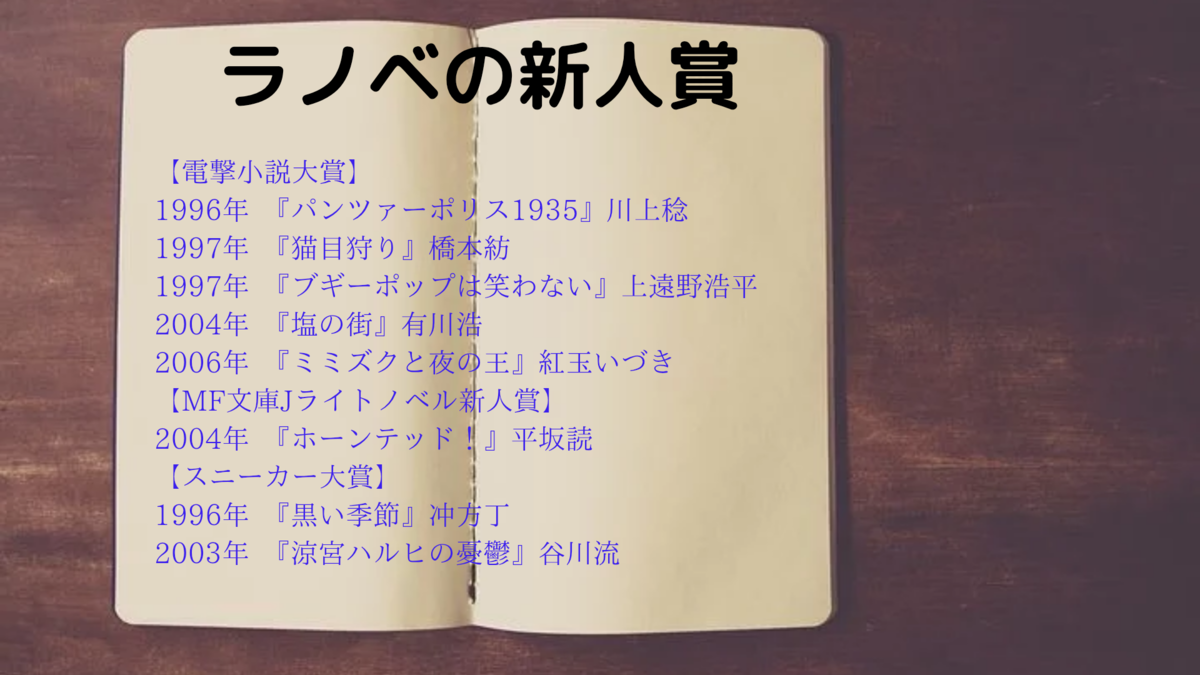 ラノベの新人賞
【電撃小説大賞】
1996年 『パンツァーポリス1935』川上稔
1997年 『猫目狩り』橋本紡
1997年 『ブギーポップは笑わない』上遠野浩平
2004年 『塩の街』有川浩
2006年 『ミミズクと夜の王』紅玉いづき
【MF文庫Jライトノベル新人賞】
2004年 『ホーンテッド！』平坂読
【スニーカー大賞】
1996年 『黒い季節』冲方丁
2003年 『涼宮ハルヒの憂鬱』谷川流